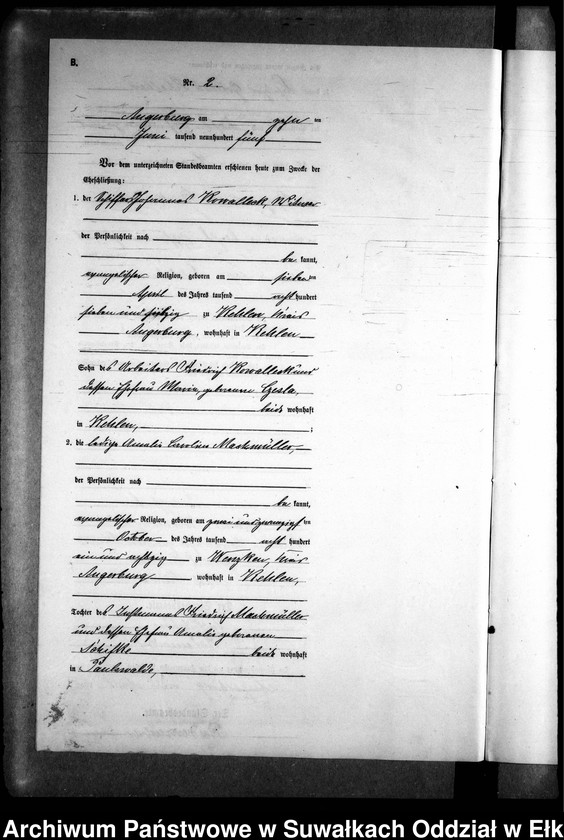 B.
Nr. 2.
Angerburg am zehn ten
Juni tausend neunhundert fünf
Vor dem unterzeichneten Standesbeamten erschienen heute zum Zwecke der
Eheschließung:
1. der Schiffer Johannes Kowalleck, Witwer
der Persönlichkeit nach
be kannt,
evangelischer Religion, geboren am sieben ten
April des Jahres tausend acht hundert
sieben und siebzig zu Kehlen, Kreis
Angerburg, wohnhaft in Kehlen
Sohn des Arbeiters Friedrich Kowalleck und
dessen Ehefrau Marie, geborenen
beide wohnhaft
in Kehlen, ;
2. die ledige Amalie Caroline Maschmüller,
der Persönlichkeit nach
be kannt,
evangelischer Religion, geboren am zwei und zwanzigs ten
October des Jahres tausend acht hundert
ein und achtzig zu Wenzken, Kreis
Angerburg, wohnhaft in Kehlen,
Tochter des Instmanns Friedrich Maschmüller
und dessen Ehefrau Amalie geborenen
beide wohnhaft
in Paulswalde,
Archiwum Państwowe w Suwałkach Oddział w Ełk